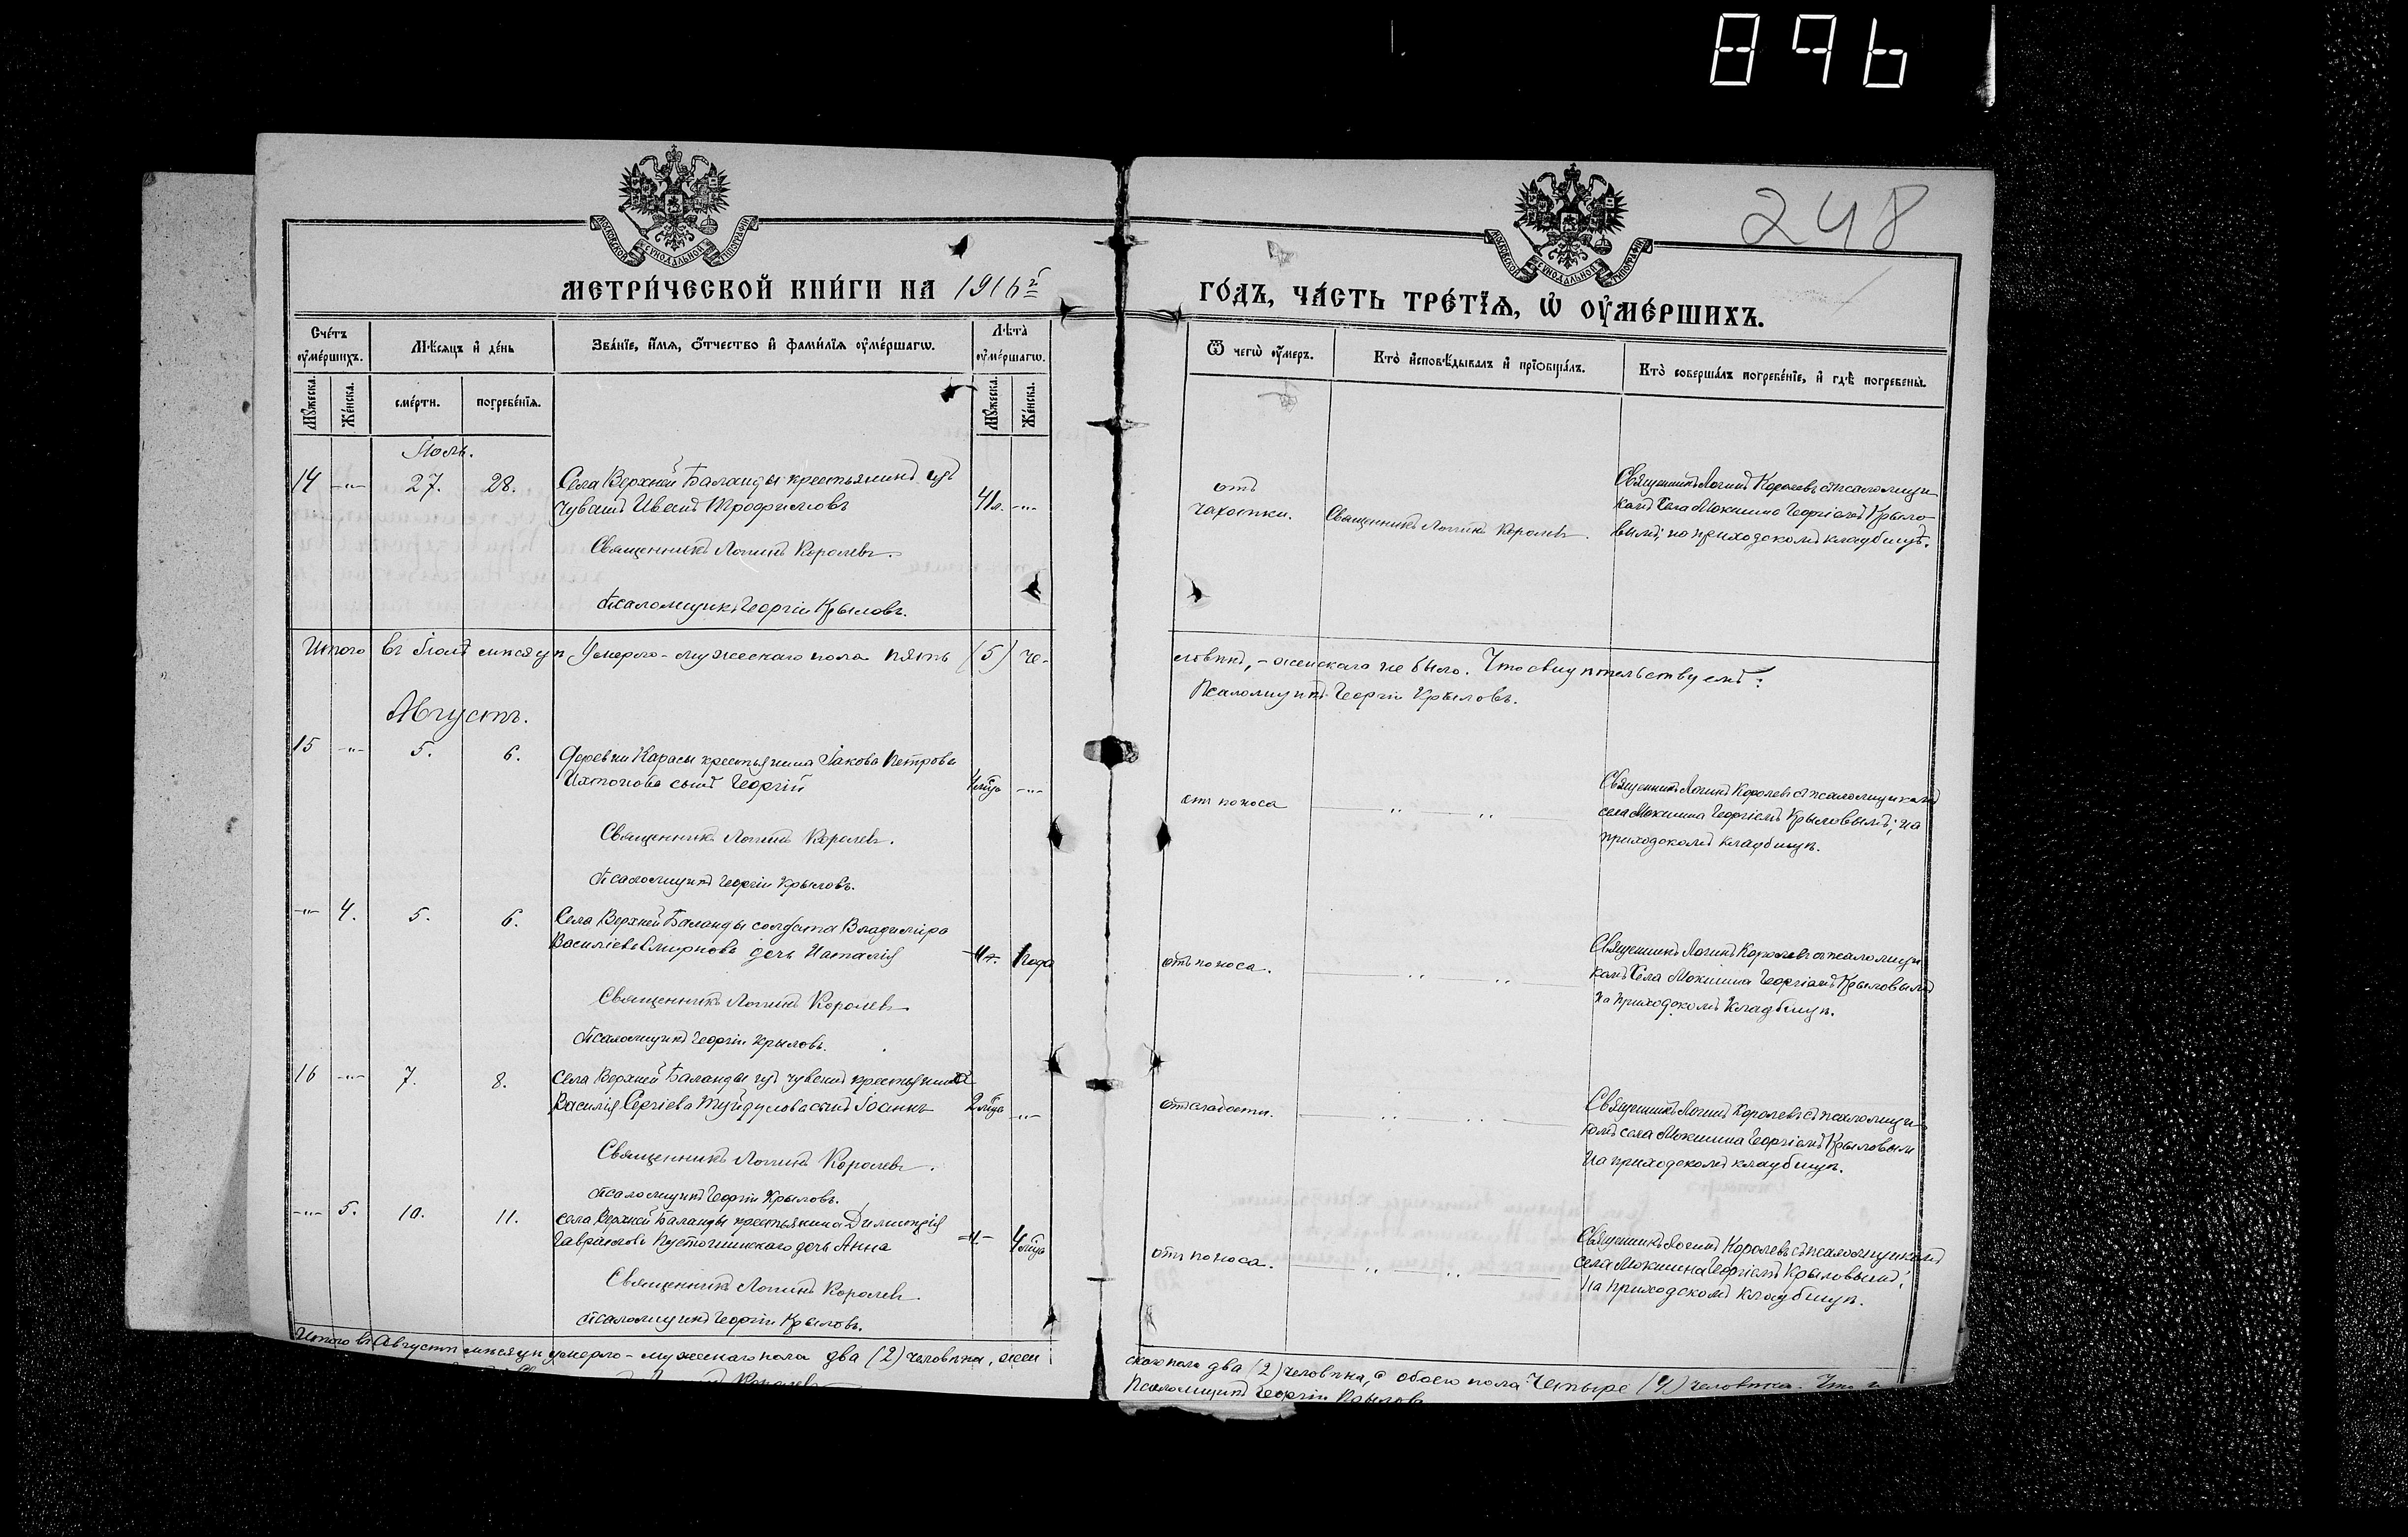 896
248
МОСКОВСКОЙ СΥНОДАЛЬНОЙ ТИПОГРАФІИ
МОСКОВСКОЙ СΥНОДАЛЬНОЙ ТИПОГРАФІИ
МЕТРИ́ЧЕСКОЙ КНИ́ГИ НА 1916 г
ГО́ДЪ, ЧА́СТЬ ТРЕ́ТЇѦ, Ѡ҆ ОУ҆МЕ́РШИХЪ.
Сче́тъ оу҆ме́ршихъ.
Мѣ́сяцъ и҆ де́нь
Зва́нїе, и҆́мя, ѻ҆́тчество и҆ фами́лїя оу҆ме́ршагѡ.
Лѣ́та оу҆ме́ршагѡ.
Ѿ чегѡ̀ оу҆́меръ.
Кто̀ и҆сповѣ́дывалъ и҆ прїѡбща́лъ.
Кто̀ соверша́лъ погребе́нїе, и҆ гдѣ̀ погребены̀.
Мꙋ́жеска.
Же́нска.
сме́рти.
погребе́нїя.
Мꙋ́жеска.
Же́нска.
Іюль.
14 -"- 27. 28. Села Верхней Баланды крестьянинъ изъ
чувашъ Иванъ Трофимовъ 41л. -"-
Священникъ Логинъ Королевъ.
Псаломщикъ Георгій Крыловъ.
отъ
чахотки.
Священникъ Логинъ Королевъ.
Священникъ Логинъ Королевъ съ псаломщи-
комъ села Мокшина Георгіемъ Крыло-
вымъ; на приходскомъ кладбищѣ.
Итого въ Іюлѣ мѣсяцѣ умерло - мужескаго пола пять (5) че-
ловѣкъ, - женскаго не было. Что свидѣтельствуемъ:
Псаломщикъ Георгій Крыловъ.
Августъ.
15 -"- 5. 6. Деревни Карасы крестьянина Іакова Петрова
сынъ Георгій -"-
Священникъ Логинъ Королевъ.
Псаломщикъ Георгій Крыловъ.
отъ поноса
Священникъ Логинъ Королевъ съ псаломщикомъ
села Мокшина Георгіемъ Крыловымъ; на
приходскомъ кладбищѣ.
-"- 4. 5. 6. Села Верхней Баланды солдата Владиміра
Василіева Смирнова дочь Наталія -"- 1 года
Священникъ Логинъ Королевъ
Псаломщикъ Георгій Крыловъ.
отъ поноса.
Священникъ Логинъ Королевъ съ псаломщи-
комъ села Мокшина Георгіемъ Крыловымъ
на приходскомъ кладбищѣ.
16 -"- 7. 8. Села Верхней Баланды изъ чувашъ крестьянина
Василія Сергіева сынъ Іоаннъ 2 мѣсѧ -"-
Священникъ Логинъ Королевъ.
Псаломщикъ Георгій Крыловъ.
отъ слабости.
Священникъ Логинъ Королевъ съ псаломщи-
комъ села Мокшина Георгіемъ Крыловымъ
на приходскомъ кладбищѣ.
-"- 5. 10. 11. Села Верхней Баланды крестьянина Димитрія
дочь Анна -"- 4 мѣсѧ
Священникъ Логинъ Королевъ.
Псаломщикъ Георгій Крыловъ.
отъ поноса.
Священникъ Логинъ Королевъ съ псаломщикомъ
села Мокшина Георгіемъ Крыловымъ;
на приходскомъ кладбищѣ.
Итого въ Августѣ мѣсяцѣ умерло - мужескаго пола два (2) человѣка, жен
скаго пола два (2) человѣка, а обоего пола четыре (4) человѣка. Что
Королевъ
Псаломщикъ Георгій Крыловъ